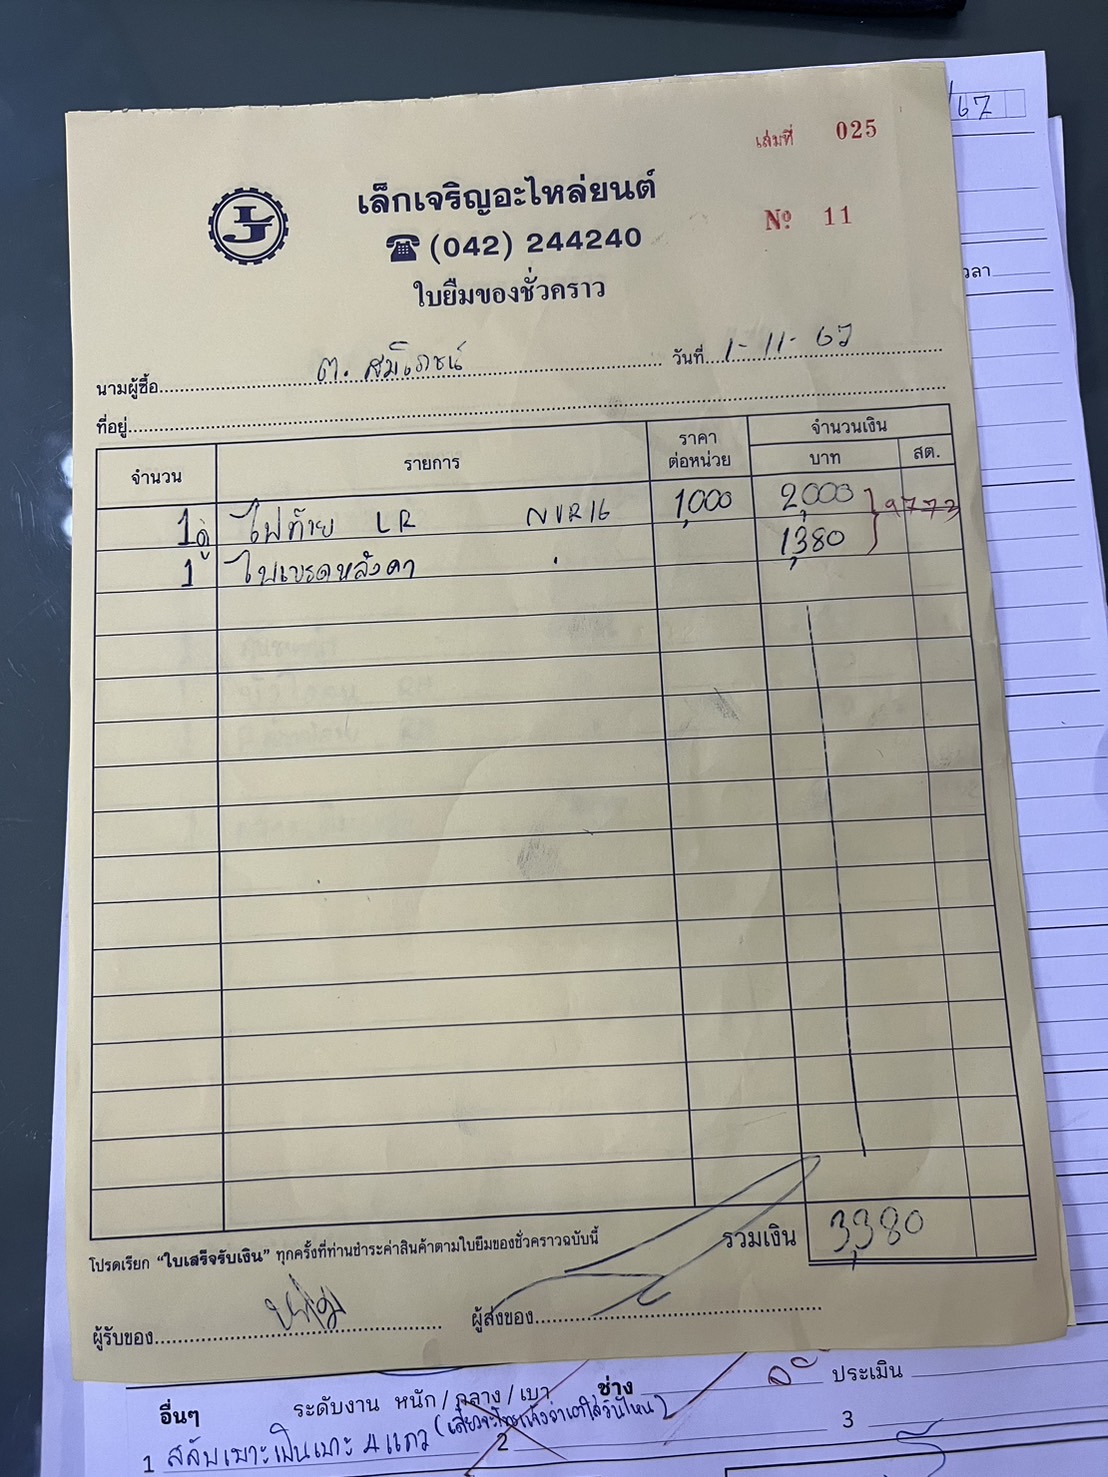 /67
เล่มที่ 025
เล็กเจริญอะไหล่ยนต์
LJ
Nº 11
☎ (042) 244240
ใบยืมของชั่วคราว
เวลา
นามผู้ซื้อ ต. สุมิตาชน์ วันที่ 1-11-67
ที่อยู่
จำนวน รายการ ราคาต่อหน่วย จำนวนเงิน
บาท สต.
1คู่ ไฟท้าย LR NVR16 1,000 2,000 } 9773
1 ไฟเบรคหลังคา 1,380
รวมเงิน 3,380
โปรดเรียก “ใบเสร็จรับเงิน” ทุกครั้งที่ท่านชำระค่าสินค้าตามใบยืมของชั่วคราวฉบับนี้
ผู้รับของ ผู้ส่งของ
อื่นๆ ระดับงาน หนัก / กลาง / เบา ช่าง ประเมิน
1 สลับเบาะเป็นเบาะ 4 แถว 2 3